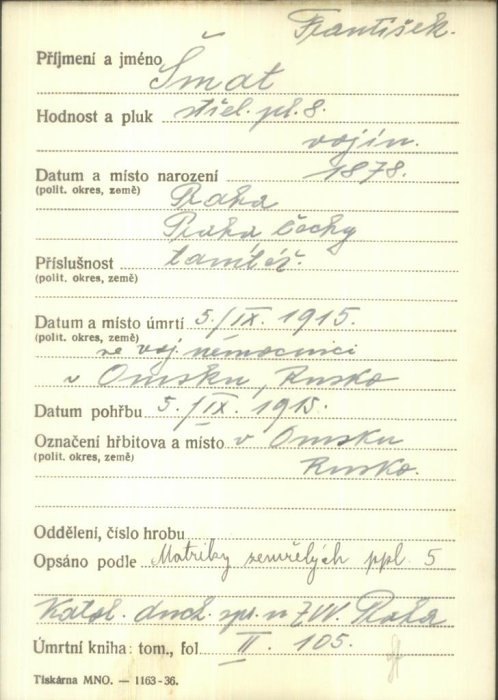 František.
Příjmení a jméno Šmat
Hodnost a pluk střel. pl. 8.
vojín.
Datum a místo narození 1878.
(polit. okres, země) Praha
Praha Čechy
Příslušnost tamtéž.
(polit. okres, země)
Datum a místo úmrtí 5./IX. 1915.
(polit. okres, země) ve voj. nemocnici
v Omsku, Rusko
Datum pohřbu 5./IX. 1915.
Označení hřbitova a místo v Omsku
(polit. okres, země) Rusko.
Oddělení, číslo hrobu
Opsáno podle Matriky zemřelých ppl. 5
Katol. duch. spr. u ZVV. Praha
Úmrtní kniha: tom., fol II. 105.
Tiskárna MNO. — 1163-36.